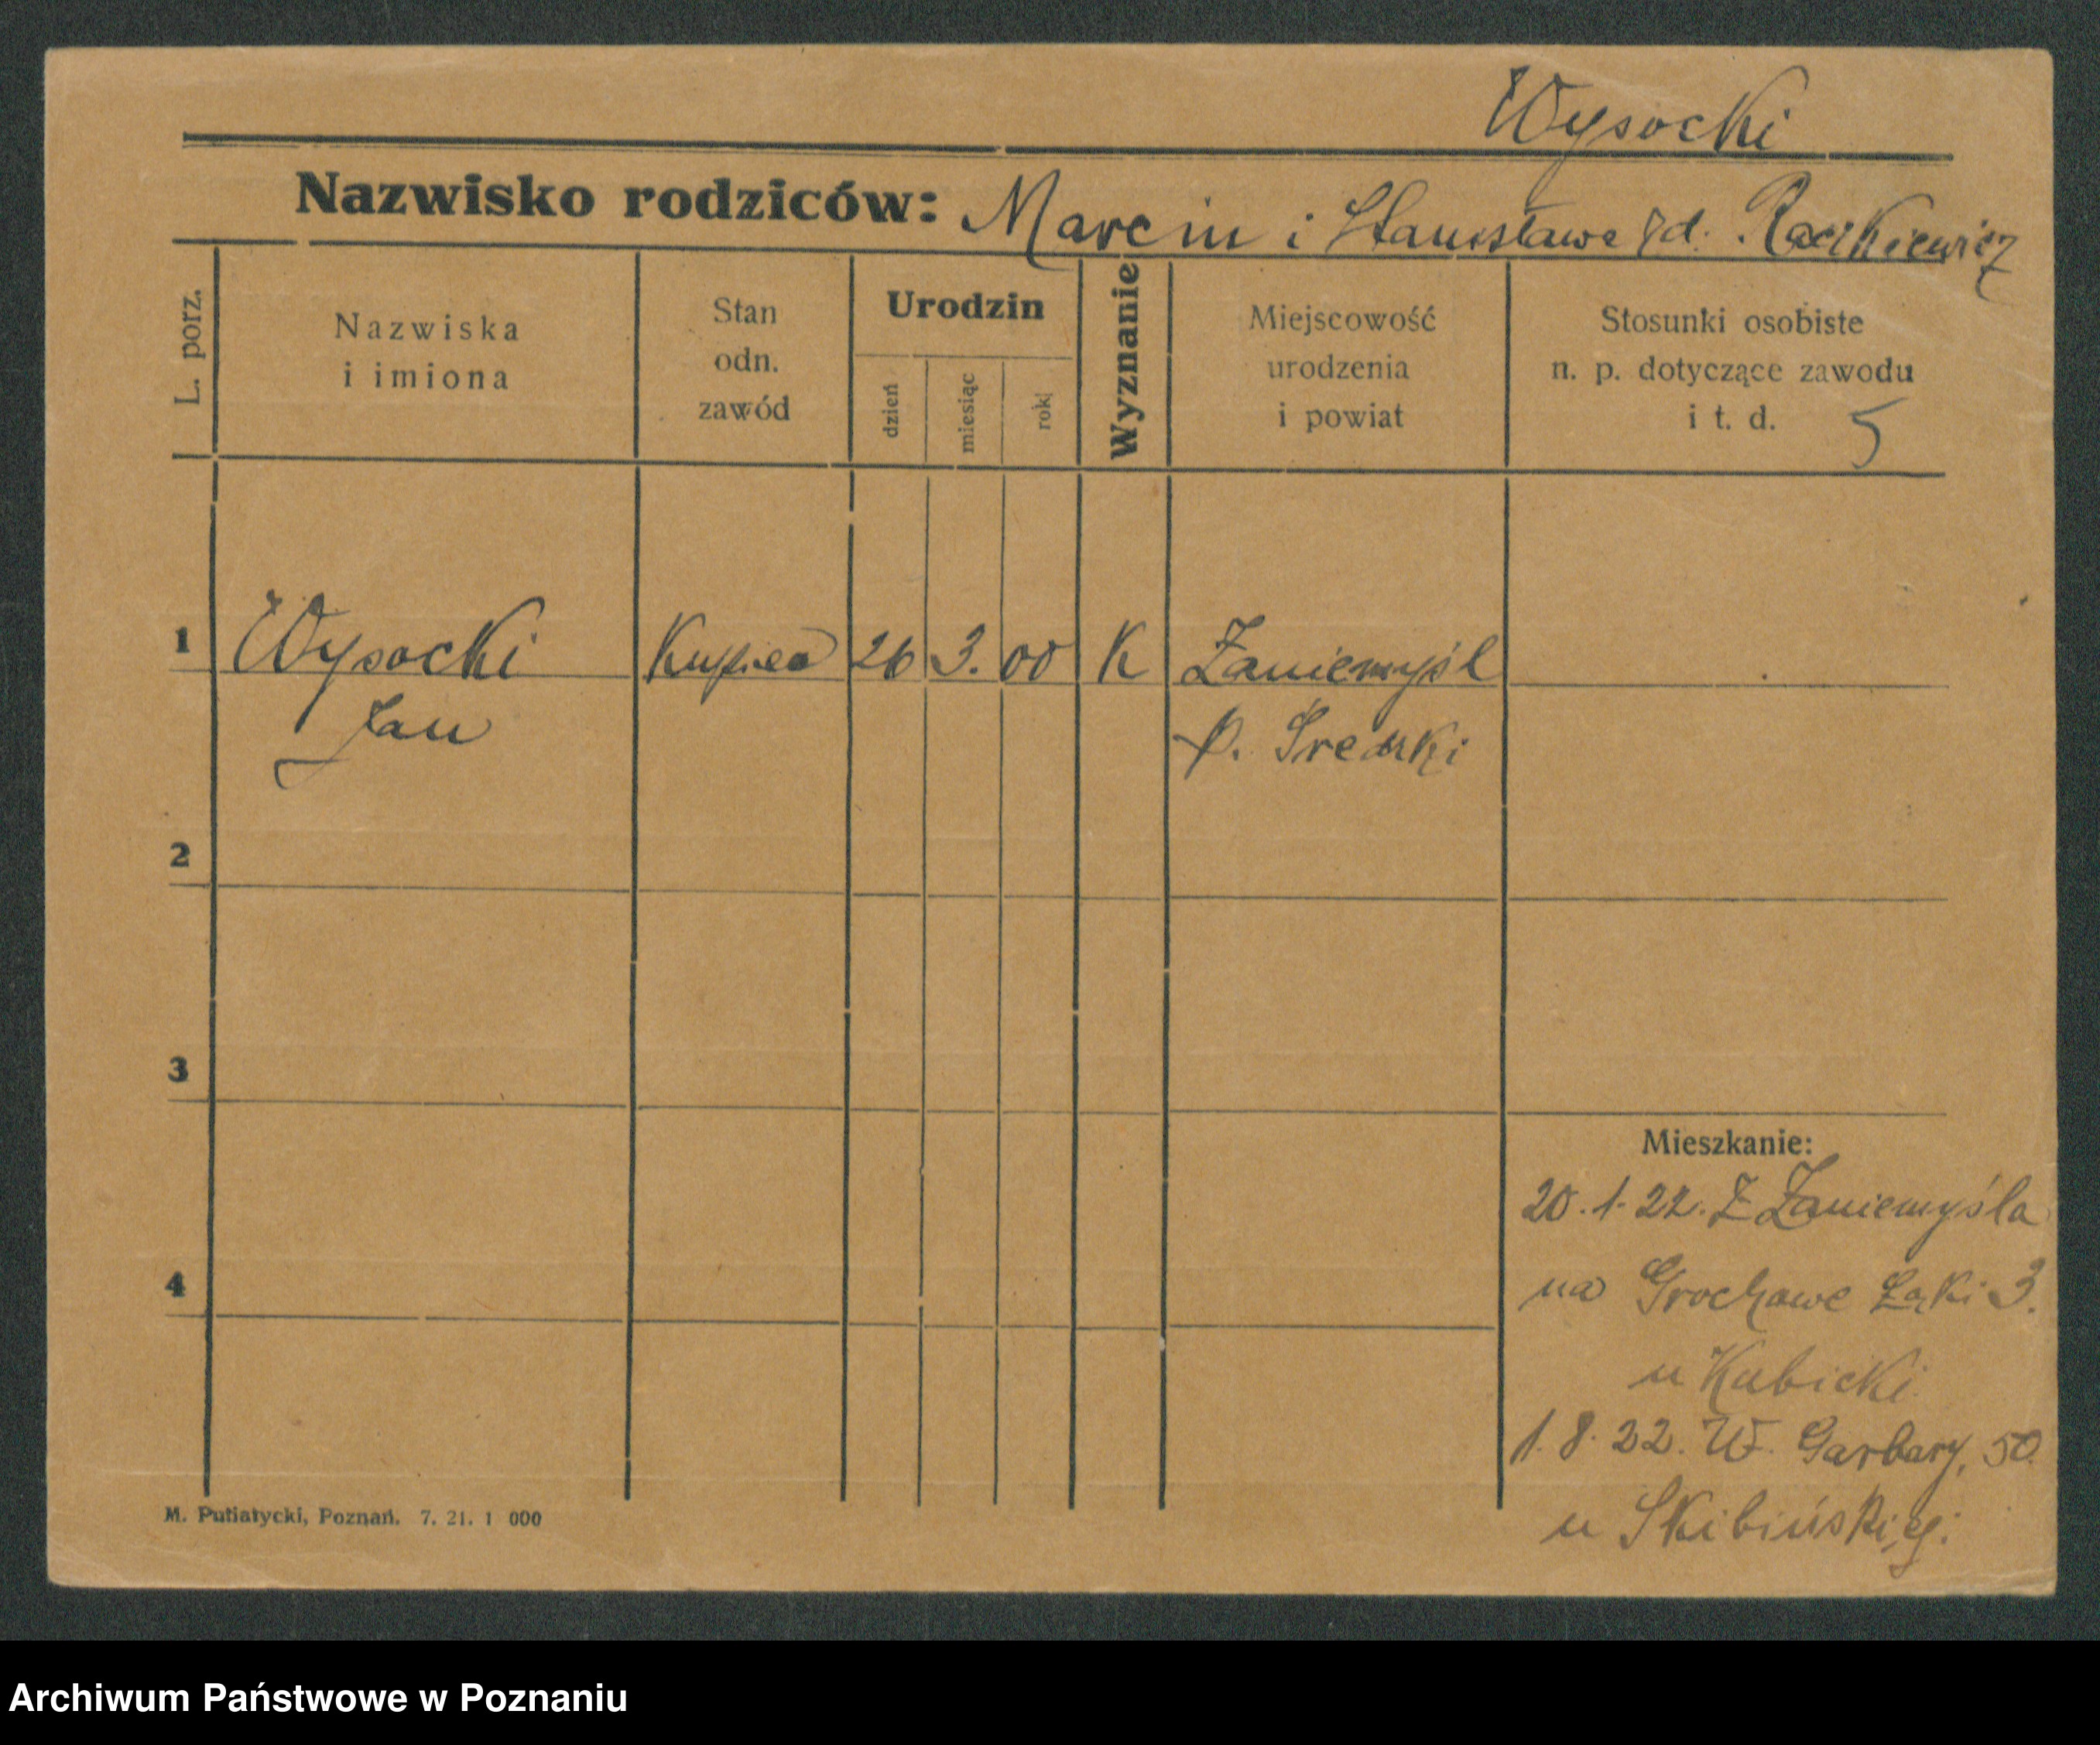 Wysocki
Nazwisko rodziców: Marcin i Stanisława rd.
L. porz.
Nazwiska
i imiona
Stan
odn.
zawód
Urodzin
dzień
miesiąc
rok
Wyznanie
Miejscowość
urodzenia
i powiat
Stosunki osobiste
n. p. dotyczące zawodu
i t. d.
5
1 Wysocki Kupiec 26 3. 00 K Zaniemyśl
Jan p. Średzki
2
3
4
Mieszkanie:
20.1.22. Z Zaniemyśla
na Grochowe Łąki 3.
u Kubicki
1.8.22. W. Garbary, 50.
u Skibińskieg:
M. Putiatycki, Poznań. 7. 21. 1 000
Archiwum Państwowe w Poznaniu